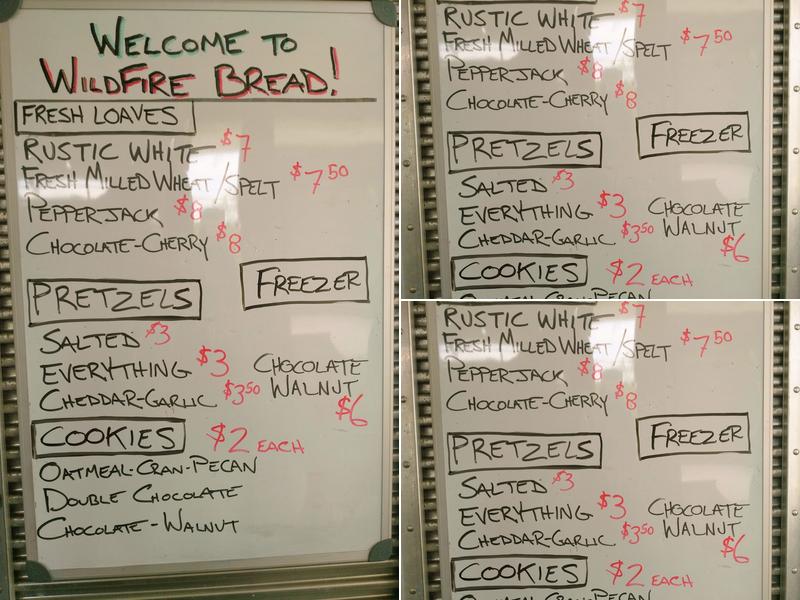 WELCOME TO
WILDFIRE BREAD!
FRESH LOAVES
RUSTIC WHITE $7
FRESH MILLED WHEAT/SPELT $7 50
PEPPERJACK $8
CHOCOLATE-CHERRY $8
PRETZELS
SALTED $3
EVERYTHING $3
CHEDDAR-GARLIC $3 50
FREEZER
CHOCOLATE
WALNUT
$6
COOKIES $2 EACH
OATMEAL-CRAN-PECAN
DOUBLE CHOCOLATE
CHOCOLATE-WALNUT
RUSTIC WHITE $7
FRESH MILLED WHEAT/SPELT $7 50
PEPPERJACK $8
CHOCOLATE-CHERRY $8
PRETZELS
SALTED $3
EVERYTHING $3
CHEDDAR-GARLIC $3 50
FREEZER
CHOCOLATE
WALNUT
$6
COOKIES $2 EACH
OATMEAL-CRAN-PECAN
RUSTIC WHITE $7
FRESH MILLED WHEAT/SPELT $7 50
PEPPERJACK $8
CHOCOLATE-CHERRY $8
PRETZELS
SALTED $3
EVERYTHING $3
CHEDDAR-GARLIC $3 50
FREEZER
CHOCOLATE
WALNUT
$6
COOKIES $2 EACH
OATMEAL-CRAN-PECAN